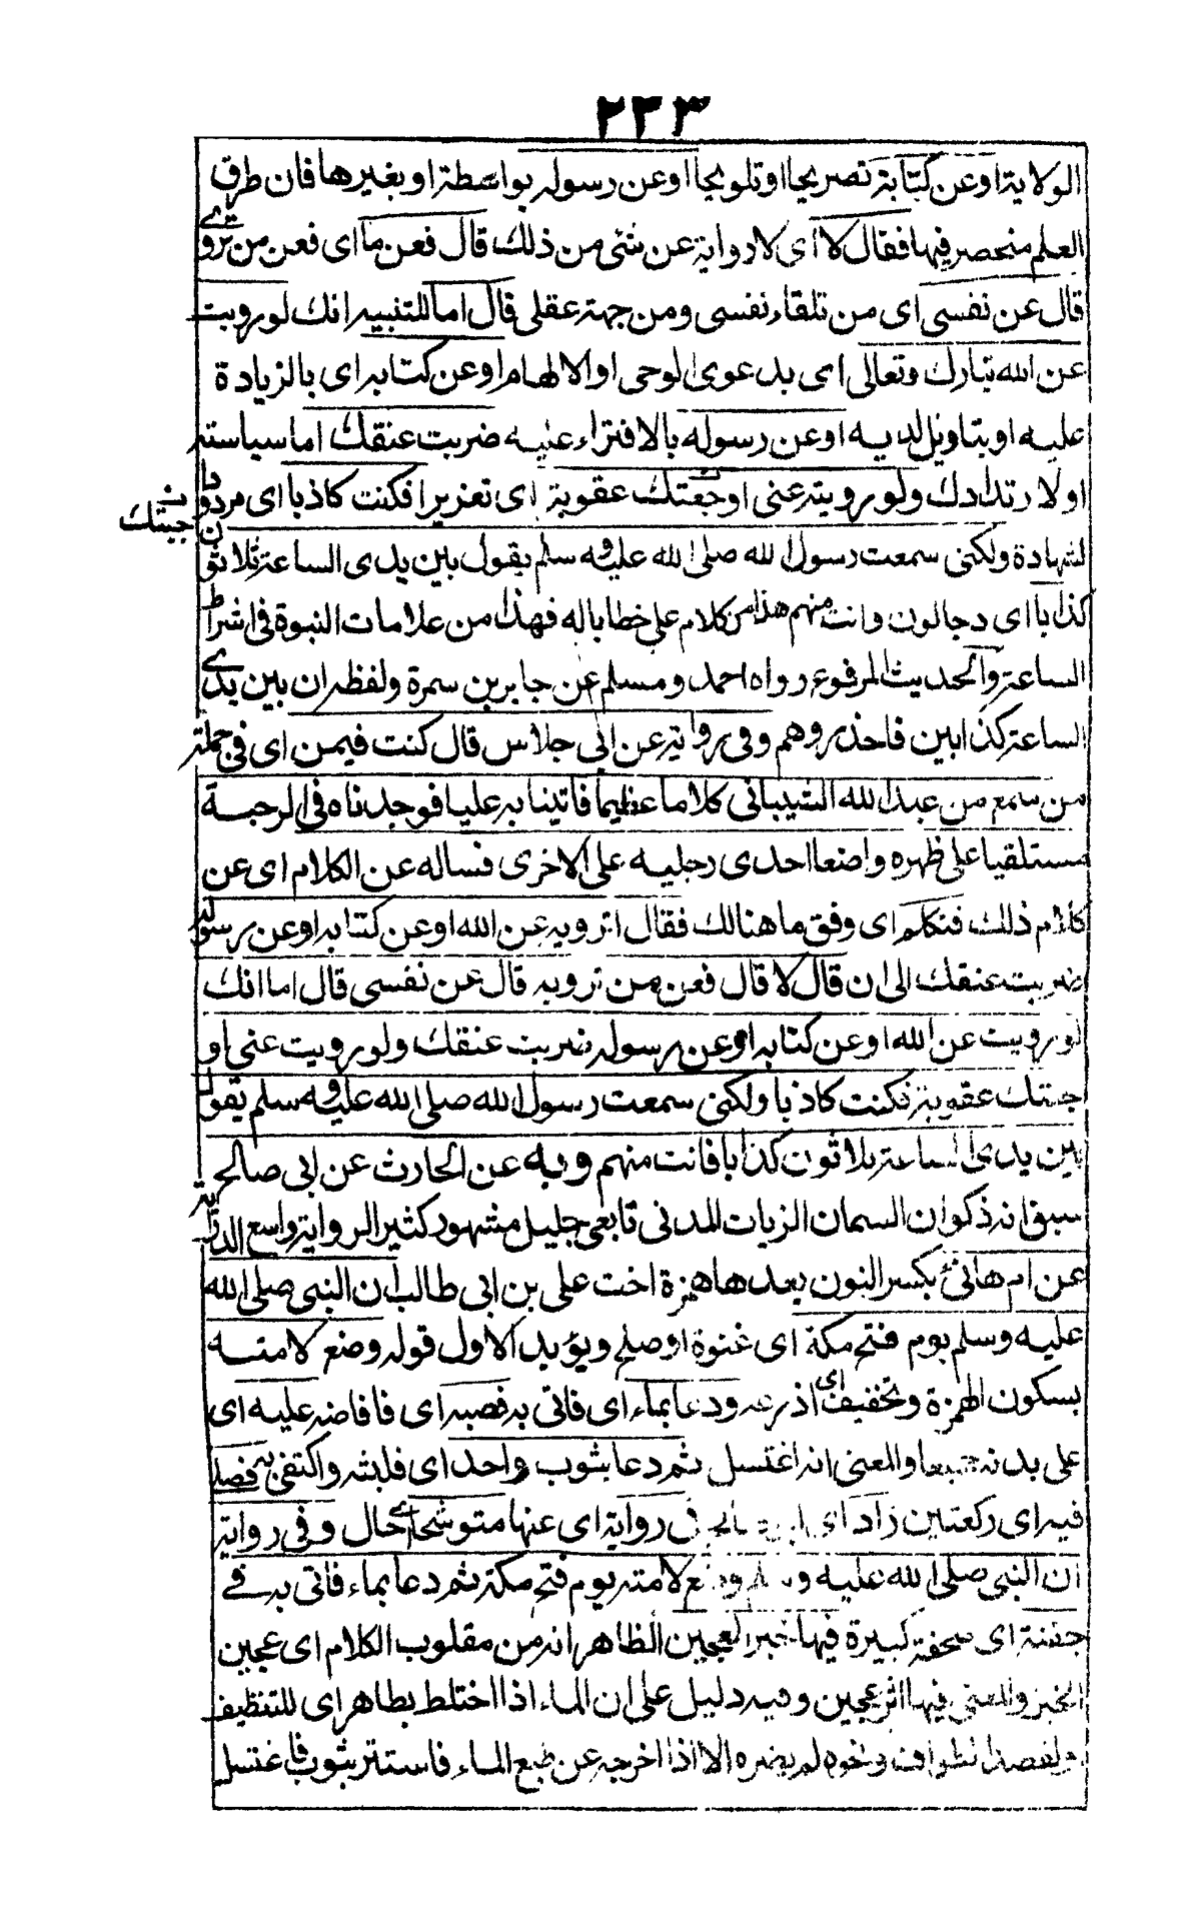 ٢٣٣
الولاية او عن كتابة تصريحا او تلويحا او عن رسوله بواسطة او بغيرها فان طرق
العلم منحصر فيها فقال لا اى لا رواية عن شئ من ذلك قال فعن ما اى فعن من تروى
قال عن نفسى اى من تلقاء نفسى ومن جهة عقلى قال اما للتنبيه انك لو رويت
عن الله تبارك وتعالى اى بدعوى الوحى او الالهام او عن كتابه اى بالزيادة
عليه او بتاويل لديه او عن رسوله بالافتراء عليه ضربت عنقك اما سياسته
او لارتدادك ولو رويته عنى اوجعتك عقوبة اى تعزيرا فكنت كاذبا اى مردود
ن جيتك
لشهادة ولكنى سمعت رسول الله صلى الله عليه وسلم يقول بين يدى الساعة ثلاثون
كذابا اى دجالون وانت منهم هذا من كلام على خطابا له فهذا من علامات النبوة فى اشراط
الساعة والحديث المرفوع رواه احمد ومسلم عن جابر بن سمرة ولفظه ان بين يدى
الساعة كذابين فاحذروهم وفى رواية عن ابى جلاس قال كنت فيمن اى فى جملة
من سمع من عبد الله الشيبانى كلاما عظيما فاتينا به عليا فوجدناه فى الرحبة
مستلقيا على ظهره واضعا احدى رجليه على الاخرى فساله عن الكلام اى عن
كلام ذلك فتكلم اى وفق ما هنالك فقال اترويه عن الله او عن كتابه او عن رسوله
ضربت عنقك الى ان قال لا قال فعن من ترويه قال عن نفسى قال اما انك
لو رويت عن الله او عن كتابه او عن رسوله ضربت عنقك ولو رويت عنى او
جيتك عقوبة فكنت كاذبا ولكنى سمعت رسول الله صلى الله عليه وسلم يقول
بين يدى الساعة ثلاثون كذابا فانت منهم وبه عن الحارث عن ابى صالح
سبق انه ذكوان السمان الزيات المدنى تابعى جليل مشهور كثير الرواية واسع الدراية
عن ام هانئ بكسر النون بعدها همزة اخت على بن ابى طالب ان النبى صلى الله
عليه وسلم يوم فتح مكة اى غنوة او صلح ويؤيد الاول قوله وضع لامته
بسكون الهمزة وتخفيف اى ودعا بماء اى فاتى به فصبه اى فافاضه عليه اى
على بدنه جميعا والمعنى انه اغتسل ثم دعا بثوب واحد اى فلبثه واكتفى به فصلى
فيه اى ركعتين زاد اى فى رواية اى عنها متوشحا اى حال وفى رواية
ان النبى صلى الله عليه وسلم وضع لامته يوم فتح مكة ثم دعا بماء فاتى به فى
جفنة اى صحفة كبيرة فيها خبز العجين الظاهر انه من مقلوب الكلام اى عجين
الخبز والمعنى فيها اثر عجين وفيه دليل على ان الماء اذا اختلط بطاهر اى للتنظيف
ونحوه لم يضره الا اذا اخرجه عن طبع الماء فاستتر بثوب فاغتسل